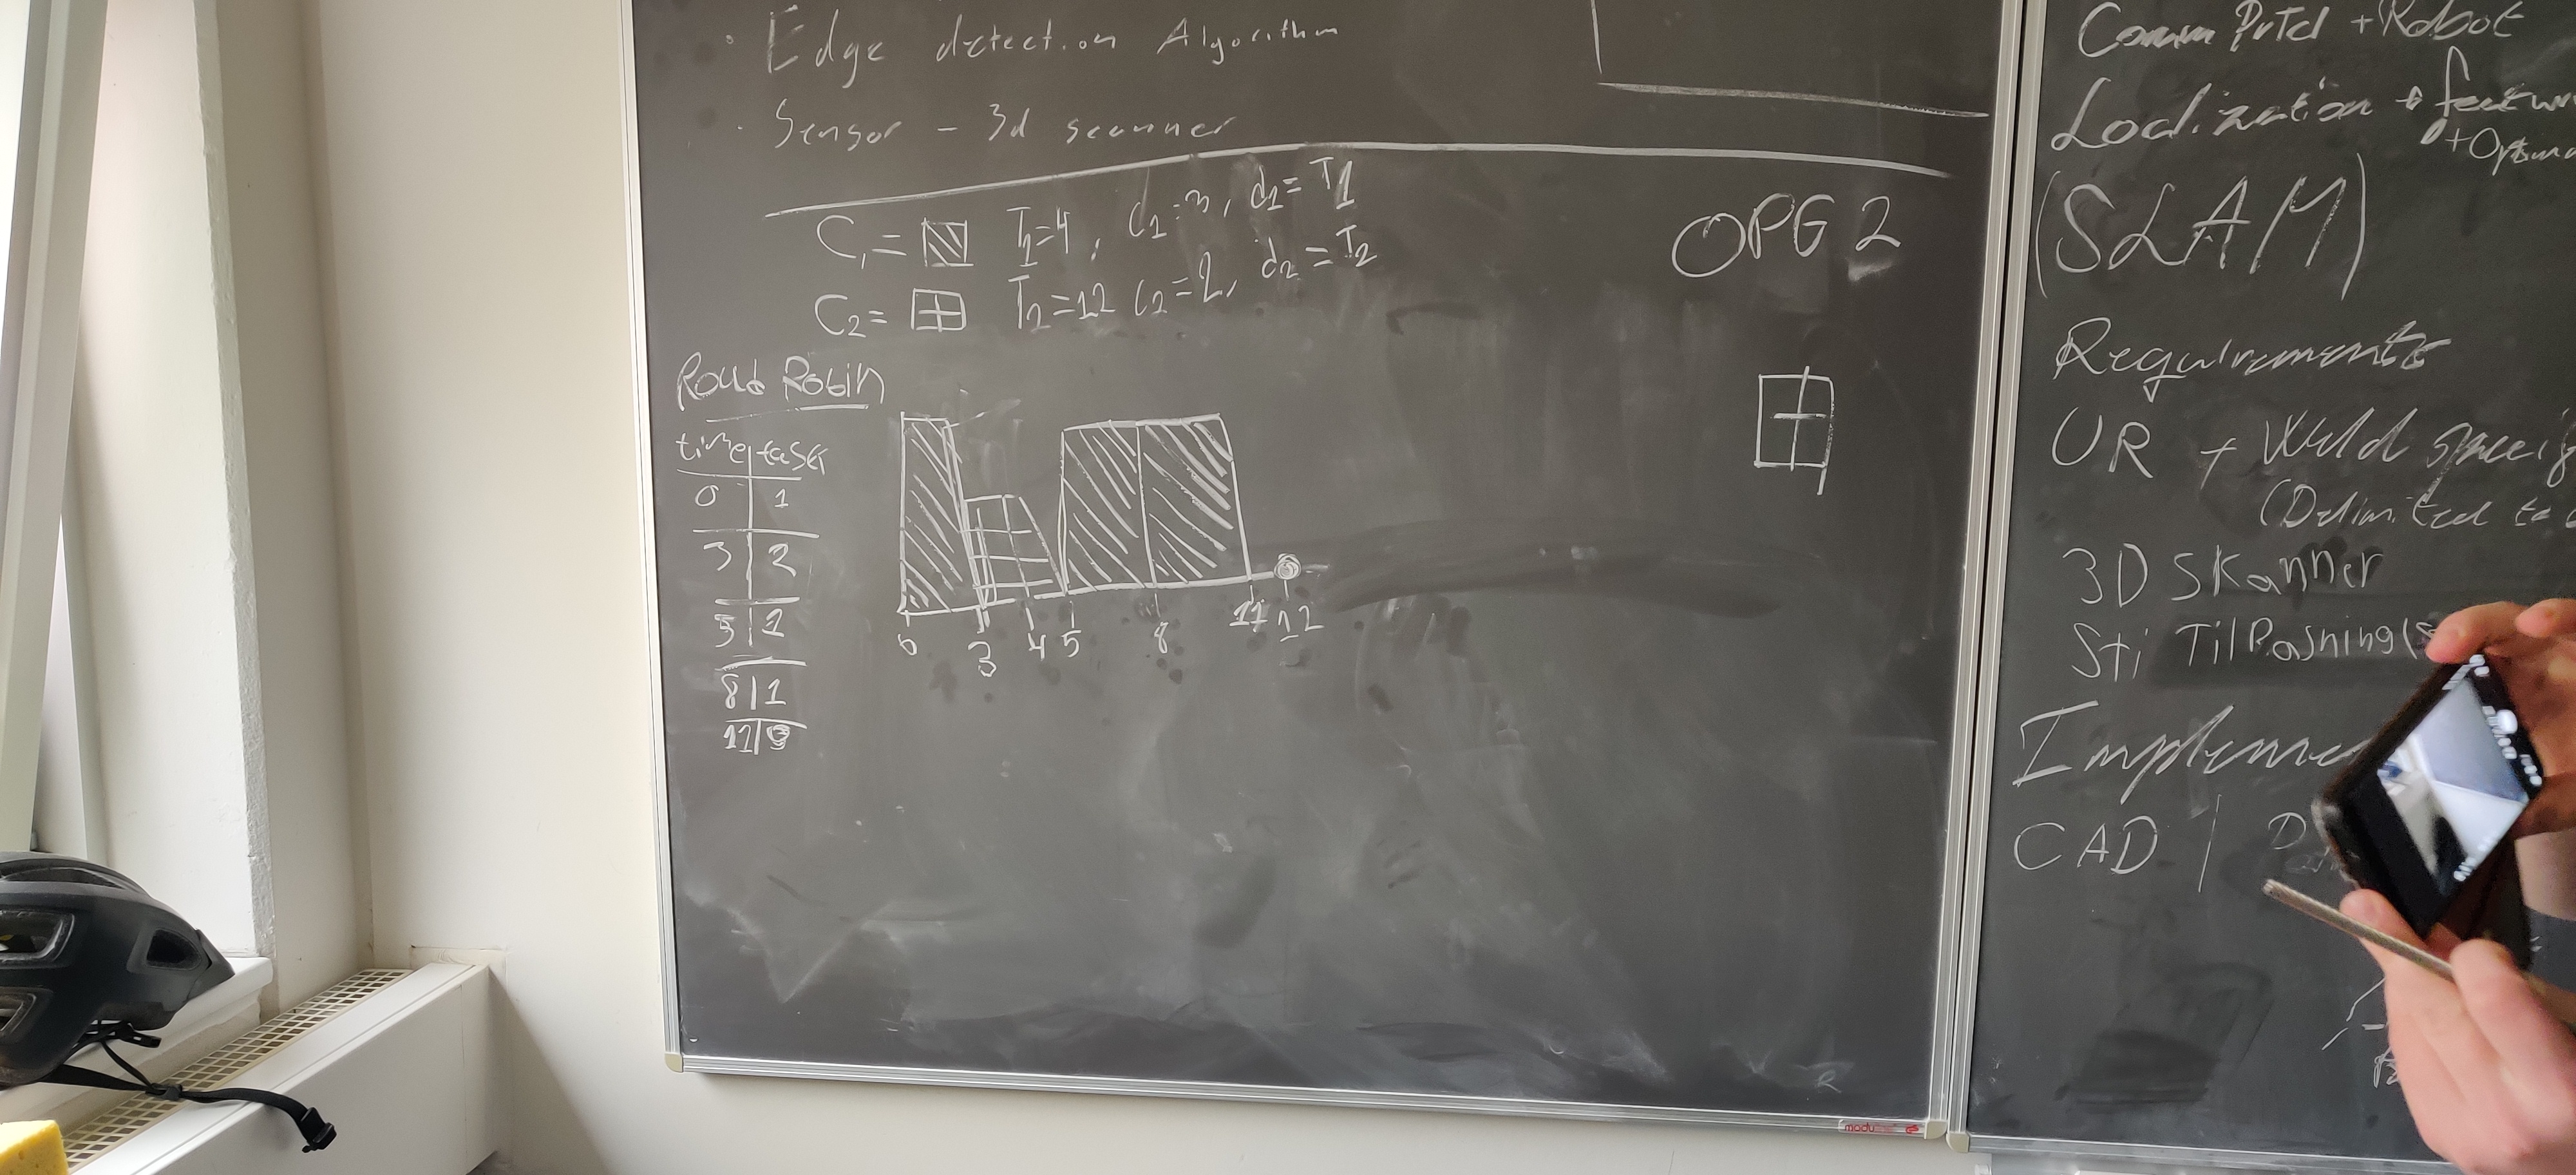 · Edge detection Algorithm
· Sensor - 3d scanner
C₁ = T₁=4, C₁=3, d₁=T1
C₂ = T₂=12 C₂=2, d₂=T₂
OPG 2
Roud Robin
time task
0 1
3 2
5 1
8 1
11
0 3 4 5 8 11 12
Comm Prtcl + Robot
Loclization +
+
(SLAM)
Requirements
UR + Weld
(Delimited to
3D Skanner
Sti TilPasning(
CAD
modu